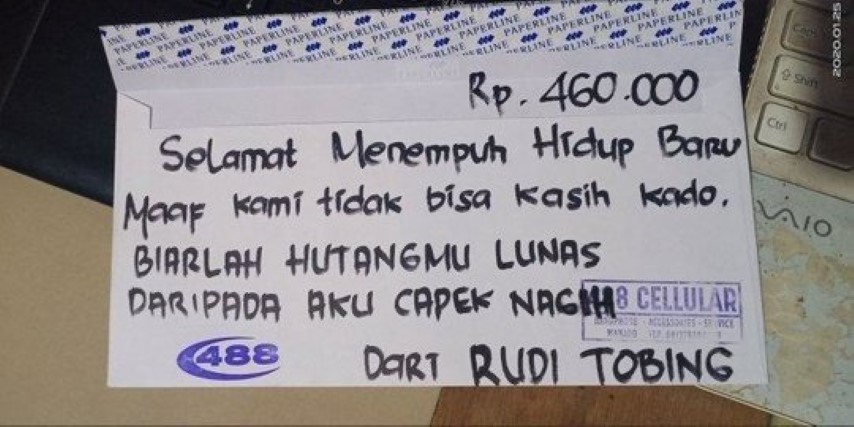 PAPERLINE PAPERLINE PAPERLINE PAPERLINE PAPERLINE
2020.01.25
Rp. 460.000
Shift
Ctrl
Selamat Menempuh Hidup Baru
Maaf kami tidak bisa kasih kado.
VAIO
BIARLAH HUTANGMU LUNAS
DARIPADA AKU CAPEK NAGIH
8 CELLULAR
ACCESSORIES - SERVICE
488
Dari RUDI TOBING